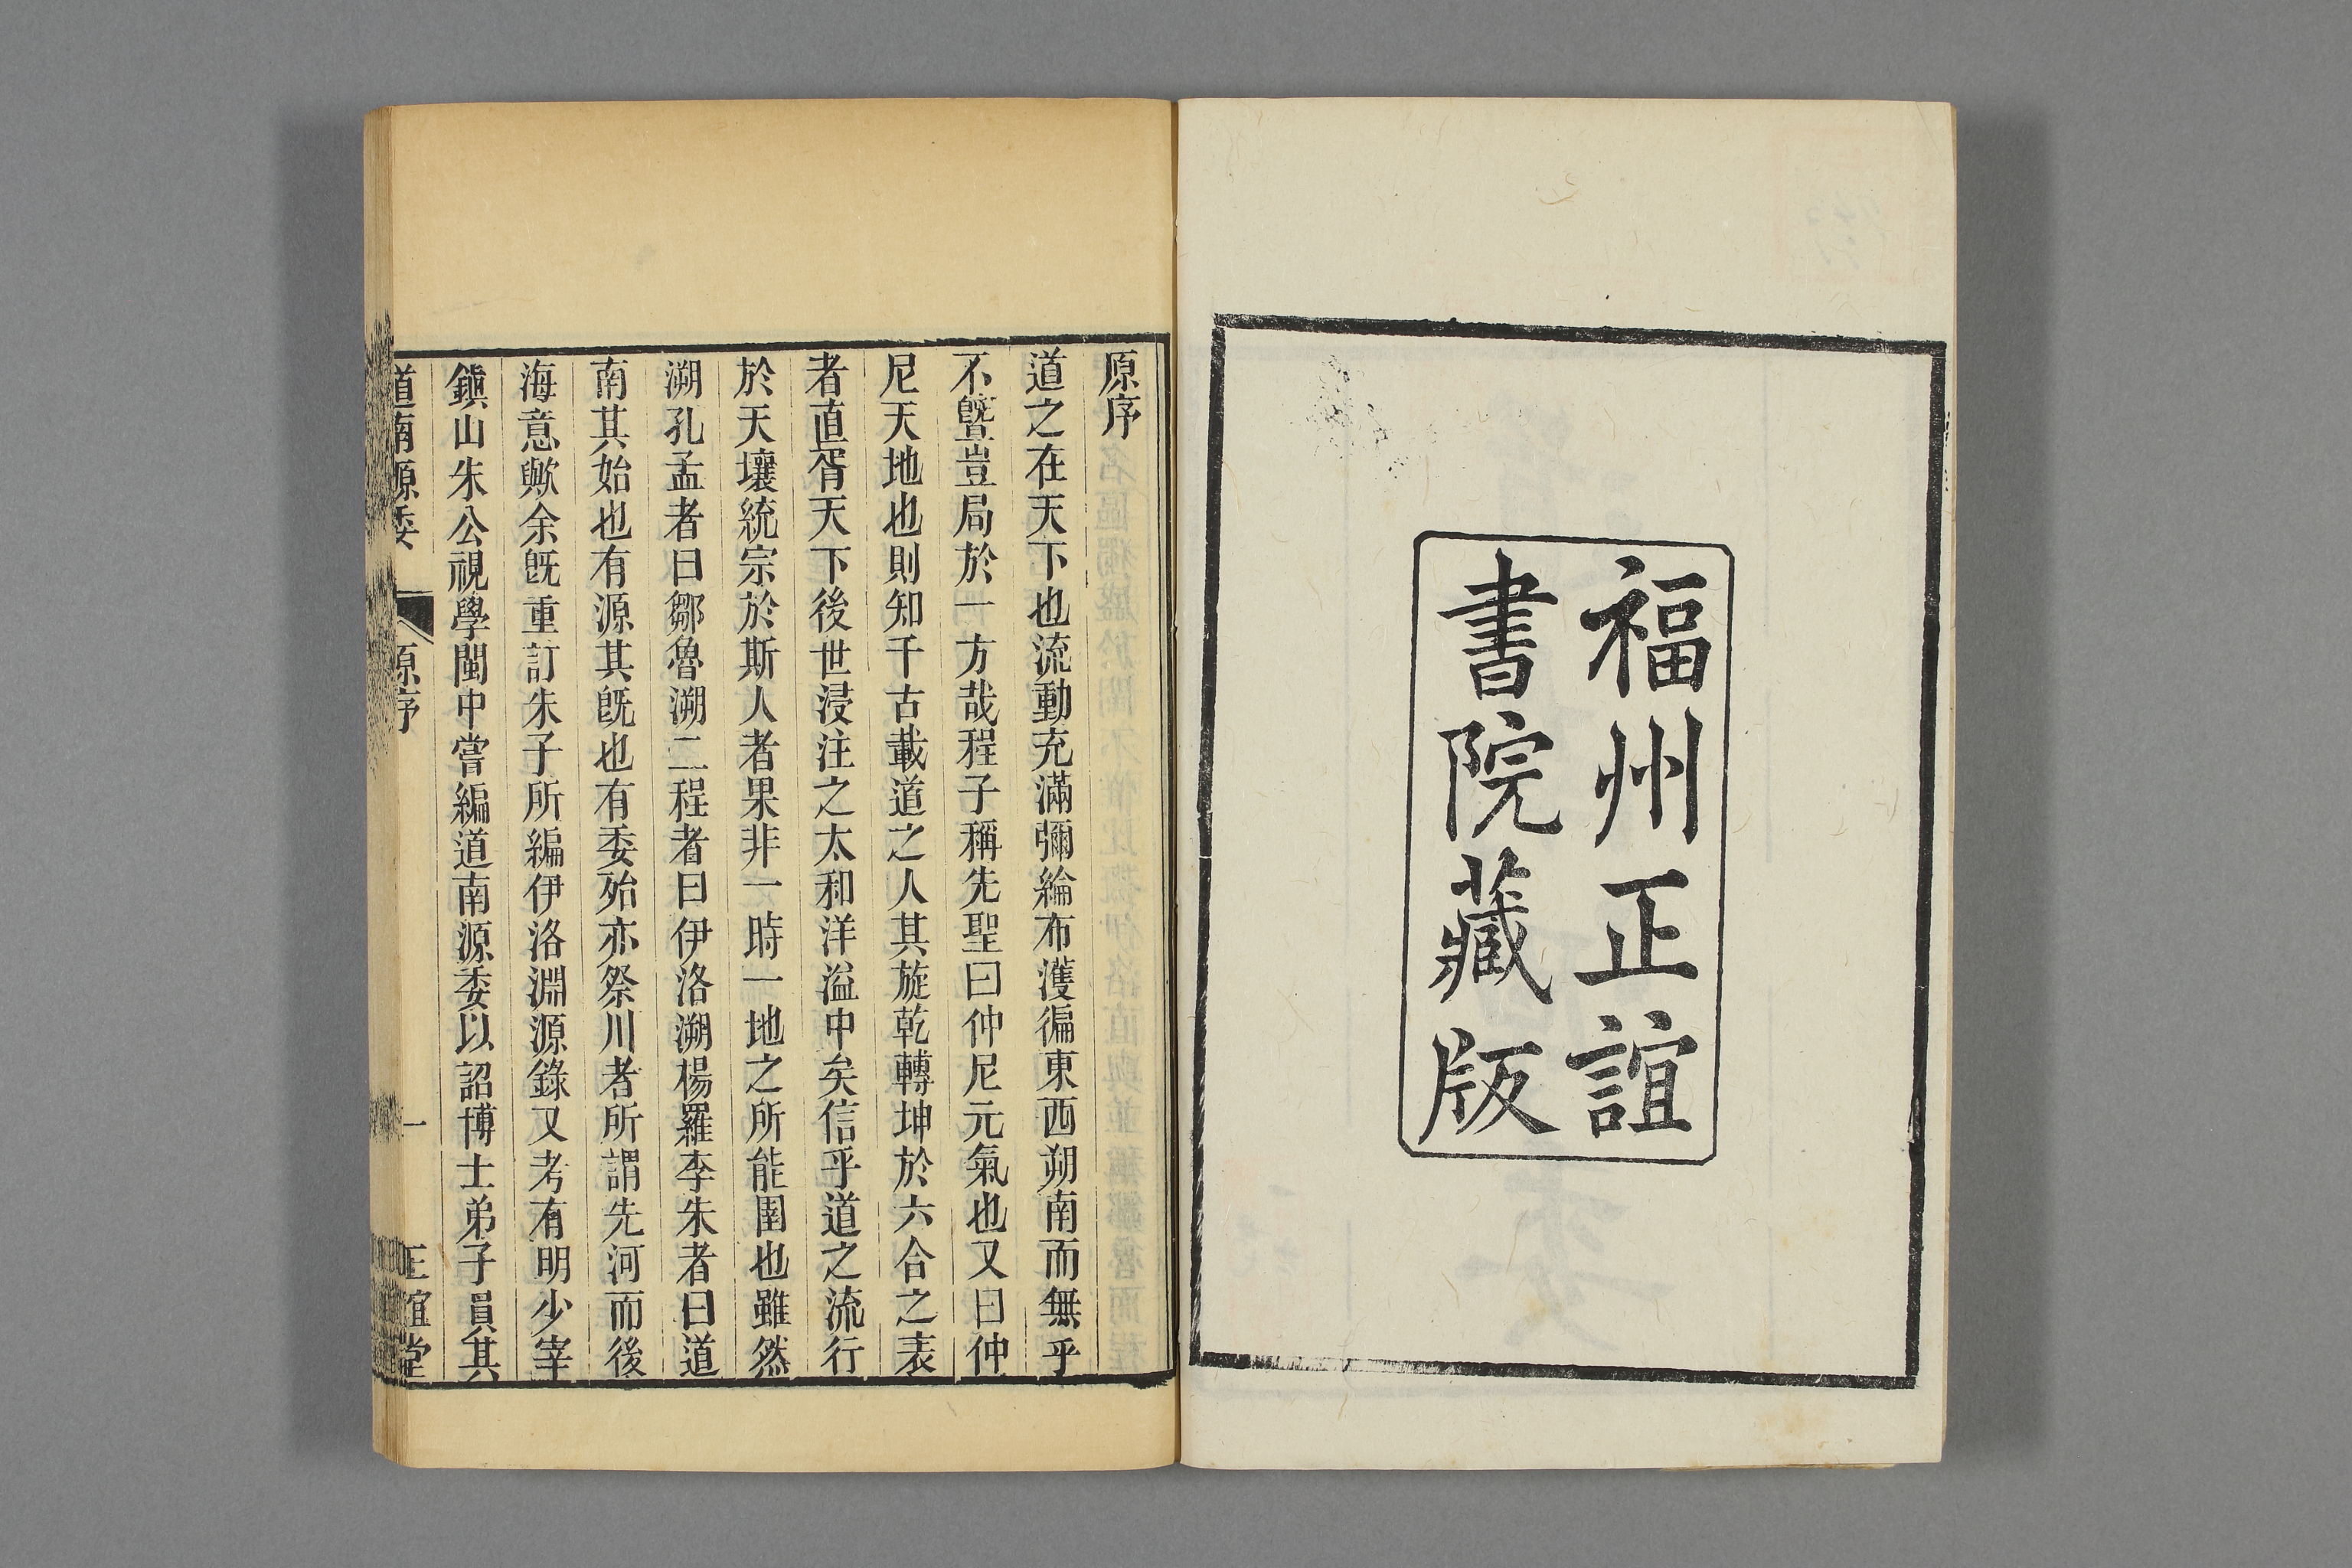 福州正誼
書院藏版
原序
道之在天下也流動充滿彌綸布濩徧東西朔南而無乎
不曁豈局於一方哉程子稱先聖曰仲尼元氣也又曰仲
尼天地也則知千古載道之人其旋乾轉坤於六合之表
者直胥天下後世浸注之太和洋溢中矣信乎道之流行
於天壤統宗於斯人者果非一時一地之所能圉也雖然
溯孔孟者曰鄒魯溯二程者曰伊洛溯楊羅李朱者曰道
南其始也有源其旣也有委殆亦祭川者所謂先河而後
海意歟余旣重訂朱子所編伊洛淵源錄又考有明少宰
鎭山朱公視學閩中嘗編道南源委以詔博士弟子員其
道南源委 原序 一 正誼堂